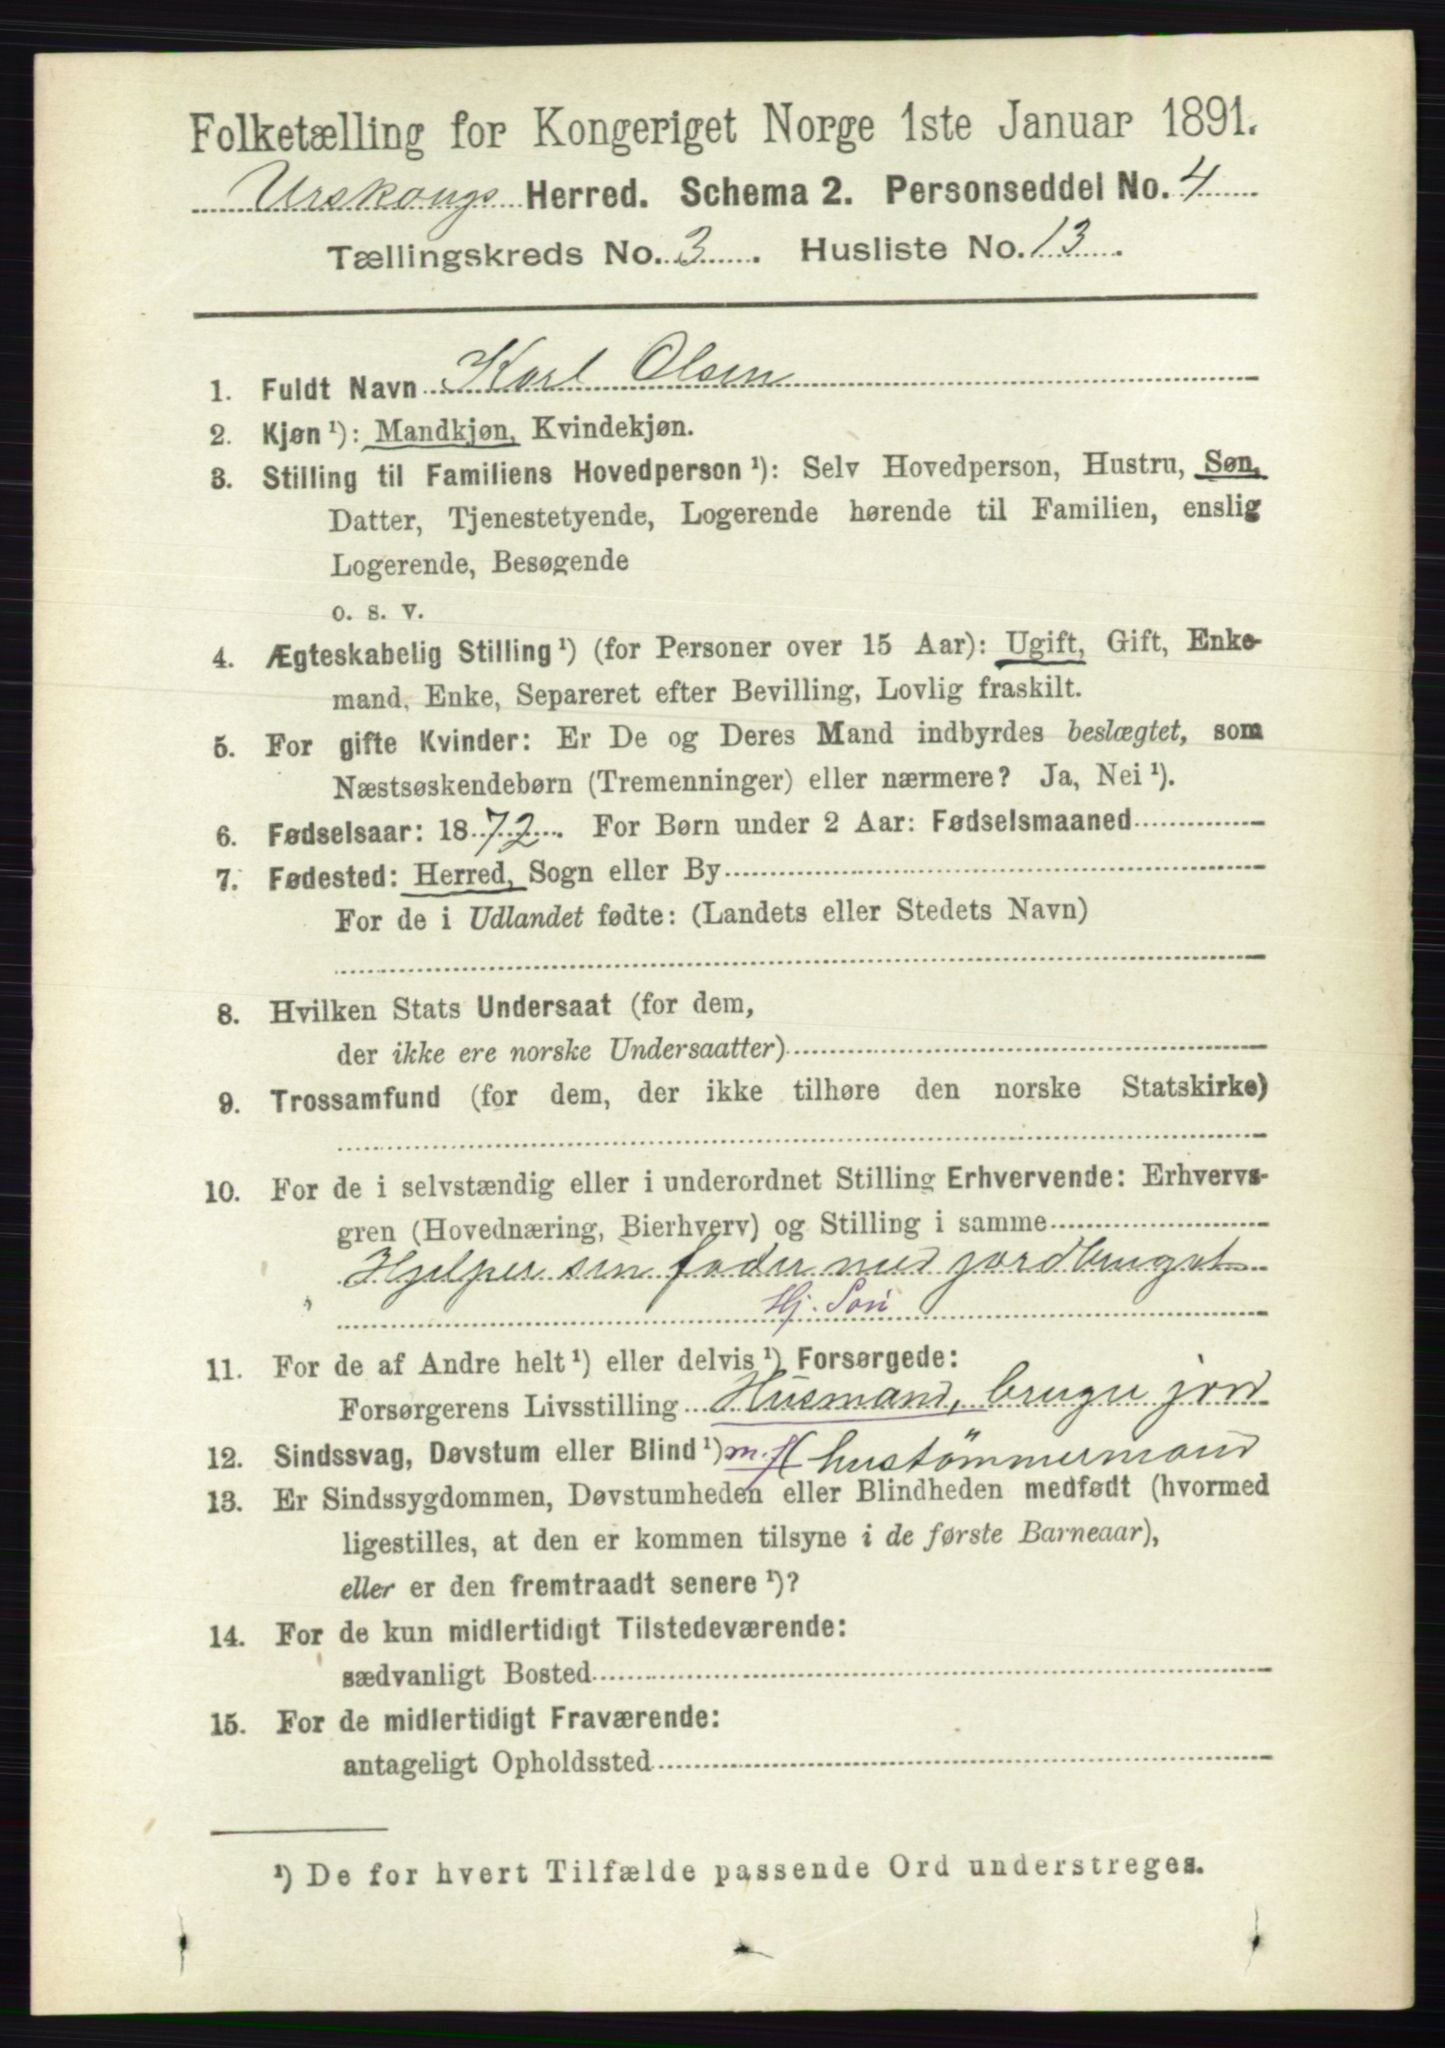 Folketælling for Kongeriget Norge 1ste Januar 1891.
Urskougs Herred. Schema 2. Personseddel No. 4
Tællingskreds No. 3. Husliste No. 13.
1. Fuldt Navn Karl Olsen
2. Kjøn¹): Mandkjøn, Kvindekjøn.
3. Stilling til Familiens Hovedperson¹): Selv Hovedperson, Hustru, Søn,
Datter, Tjenestetyende, Logerende hørende til Familien, enslig
Logerende, Besøgende
o. s. v.
4. Ægteskabelig Stilling¹) (for Personer over 15 Aar): Ugift, Gift, Enke-
mand, Enke, Separeret efter Bevilling, Lovlig fraskilt.
5. For gifte Kvinder: Er De og Deres Mand indbyrdes beslægtet, som
Næstsøskendebørn (Tremenninger) eller nærmere? Ja, Nei¹).
6. Fødselsaar: 1872. For Børn under 2 Aar: Fødselsmaaned
7. Fødested: Herred, Sogn eller By
For de i Udlandet fødte: (Landets eller Stedets Navn)
8. Hvilken Stats Undersaat (for dem,
der ikke ere norske Undersaatter)
9. Trossamfund (for dem, der ikke tilhøre den norske Statskirke)
10. For de i selvstændig eller i underordnet Stilling Erhvervende: Erhvervs-
gren (Hovednæring, Bierhverv) og Stilling i samme
Hjelper sin fader med jordbruget
Hj. Søn
11. For de af Andre helt¹) eller delvis¹) Forsørgede:
Forsørgerens Livsstilling Husmand, bruger jord
12. Sindssvag, Døvstum eller Blind¹) m. J. hustømmermand
13. Er Sindssygdommen, Døvstumheden eller Blindheden medfødt (hvormed
ligestilles, at den er kommen tilsyne i de første Barneaar),
eller er den fremtraadt senere¹)?
14. For de kun midlertidigt Tilstedeværende:
sædvanligt Bosted
15. For de midlertidigt Fraværende:
antageligt Opholdssted
¹) De for hvert Tilfælde passende Ord understreges.